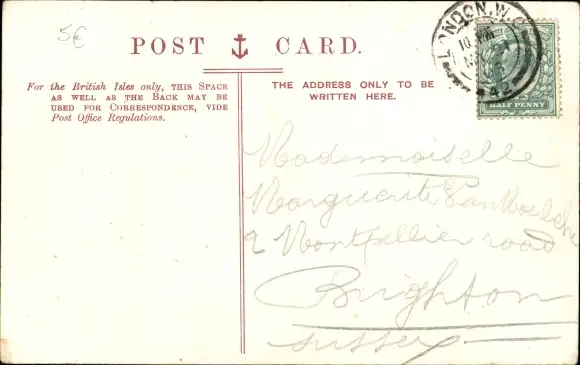 5€
POST CARD.
For the British Isles only, THIS SPACE
AS WELL AS THE BACK MAY BE
USED FOR CORRESPONDENCE, VIDE
Post Office Regulations.
THE ADDRESS ONLY TO BE
WRITTEN HERE.
LONDON. W.C
10
42
HALF PENNY
Mademoiselle
Marguerite
2 Montpellier road
Brighton
Sussex